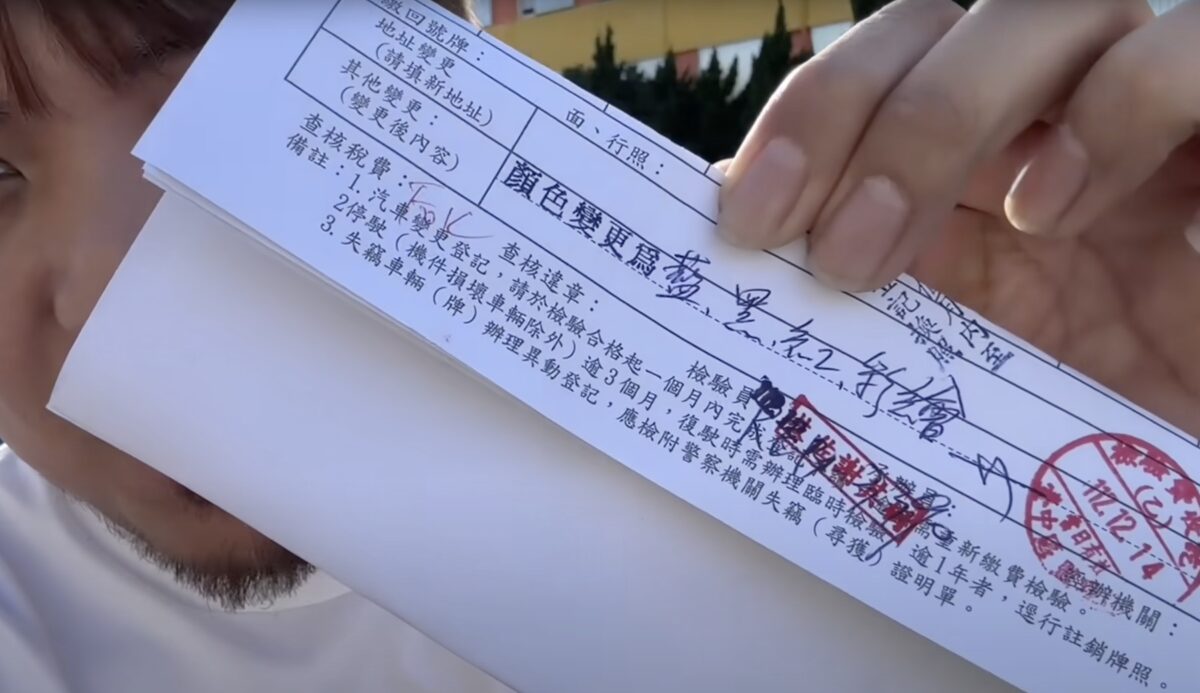 繳回號牌：
面、行照：
地址變更
(請填新地址)
其他變更：
(變更後內容)
顏色變更為 藍.黑.紅.彩繪
查核稅費：
查核違章：
檢驗員
主辦機關：
備註：1.汽車變更登記，請於檢驗合格起一個月內完成
重新繳費檢驗。
2停駛（機件損壞車輛除外）逾3個月，復駛時需辦理臨時檢驗，逾1年者，逕行註銷牌照。
3.失竊車輛（牌）辦理異動登記，應檢附警察機關失竊（尋獲）證明單。
(乙)
112.12.14